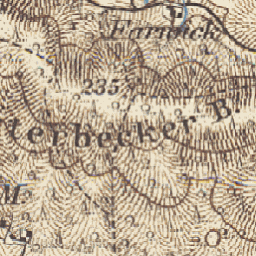 Farwick
235
terbecker B.
M.
O